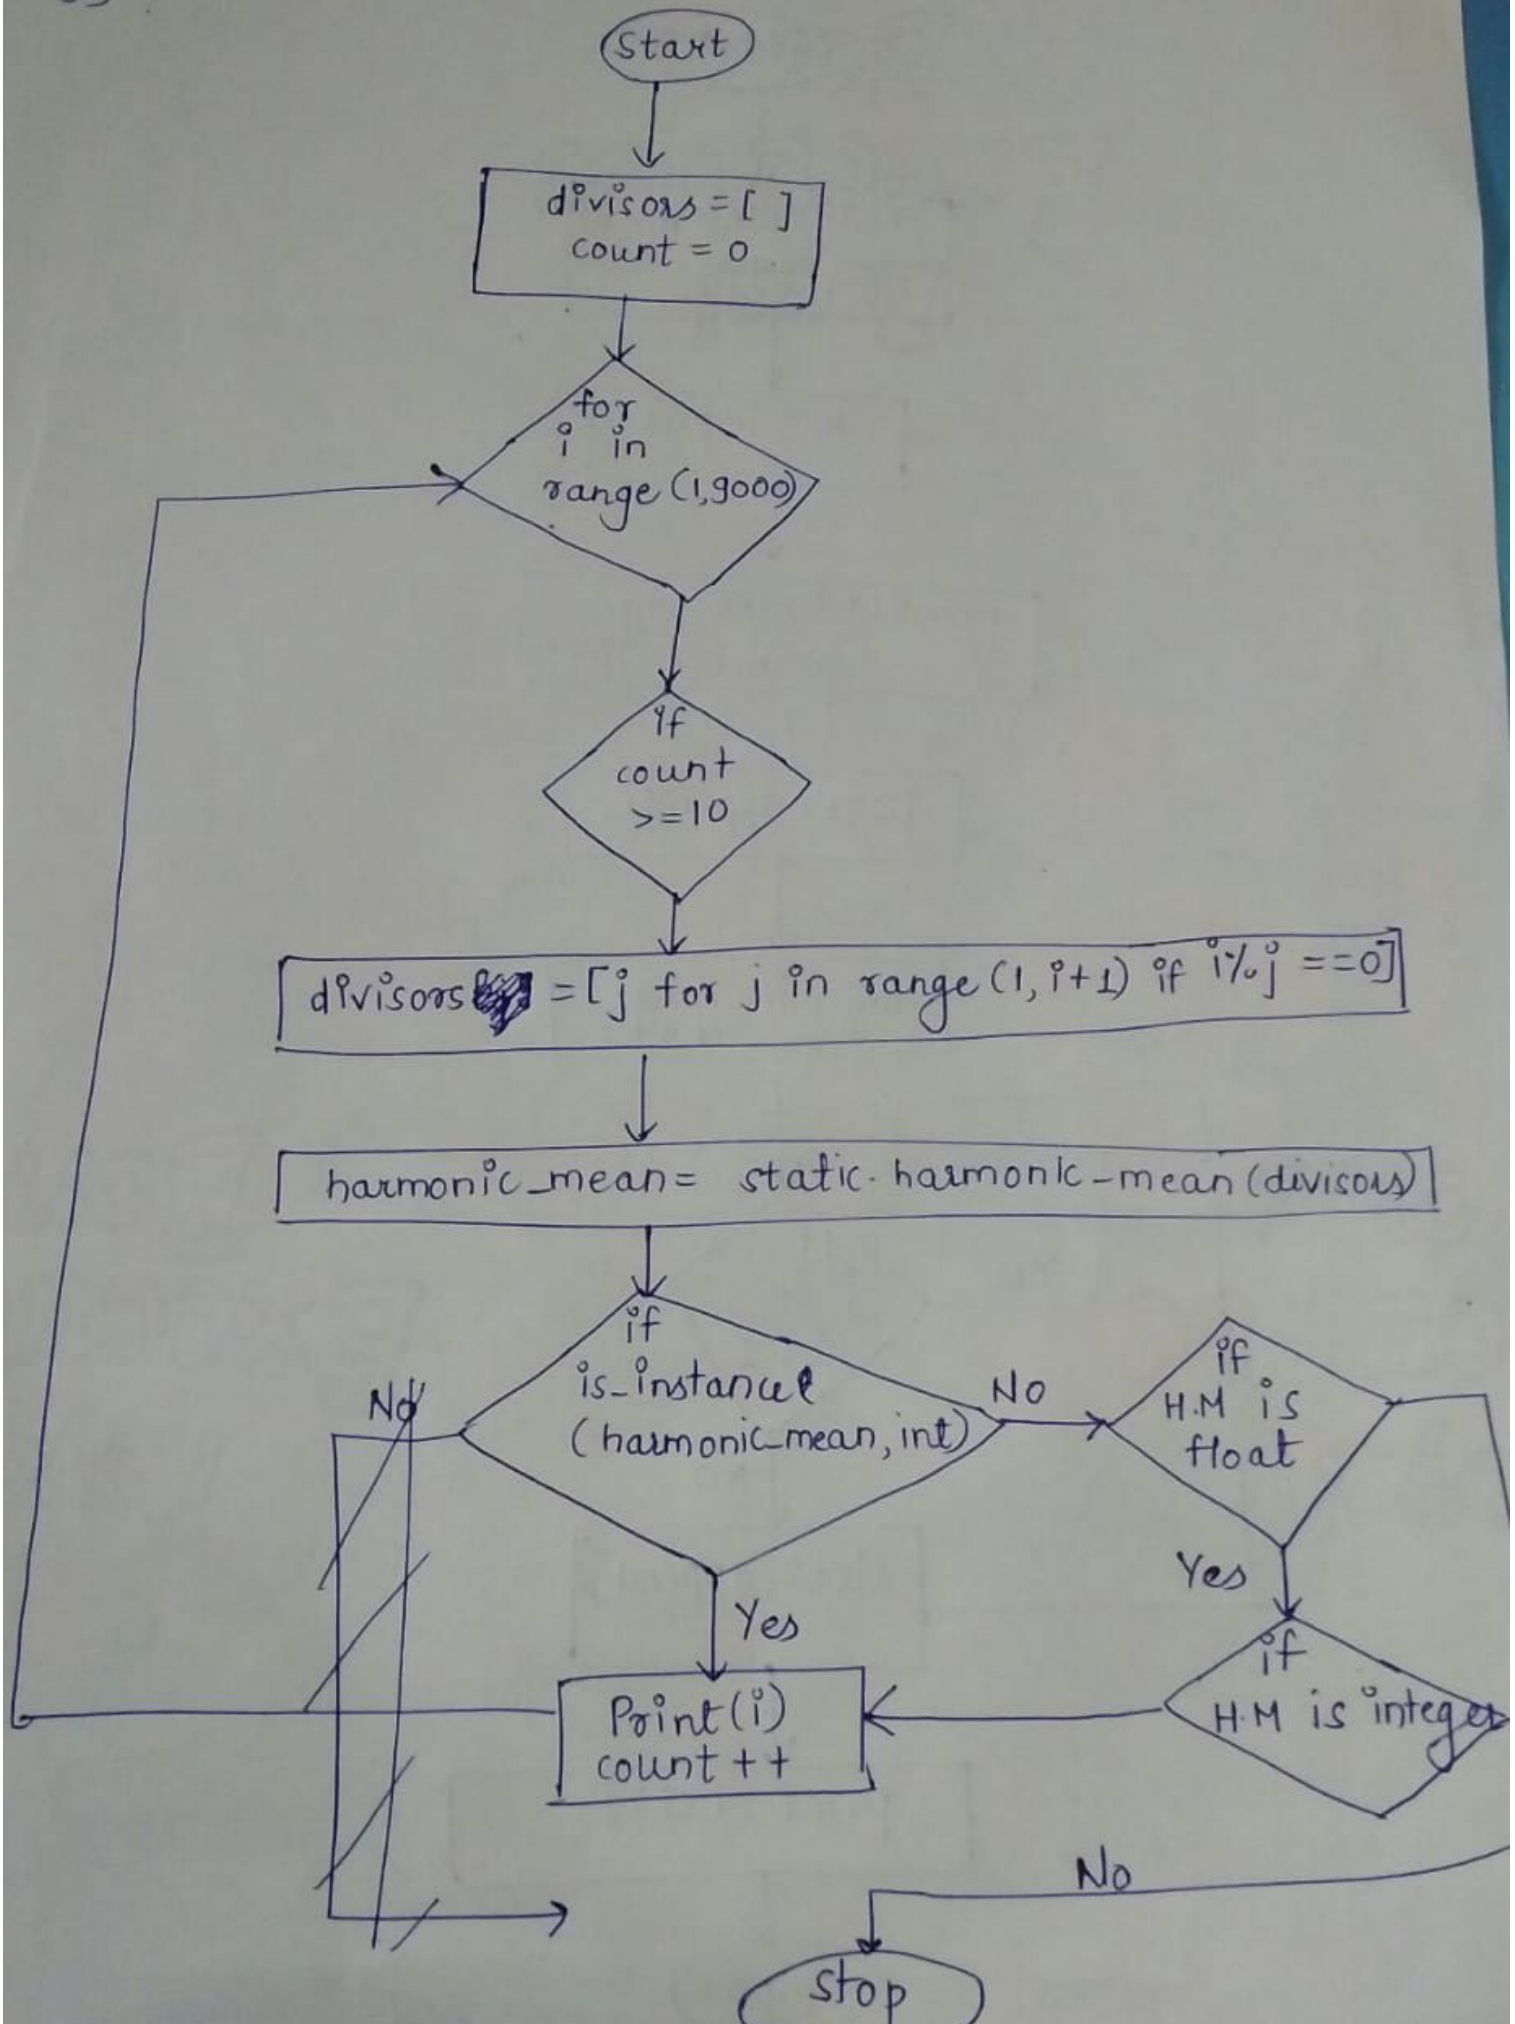 Start
divisors = [ ]
count = 0
for
i in
range (1,9000)
if
count
>=10
divisors = [j for j in range (1, i+1) if i%j ==0]
harmonic_mean = static. harmonic-mean (divisors)
if
is_instance
(harmonic_mean, int)
No
No
if
H.M is
float
Yes
Yes
if
H.M is integer
Print(i)
count ++
No
stop